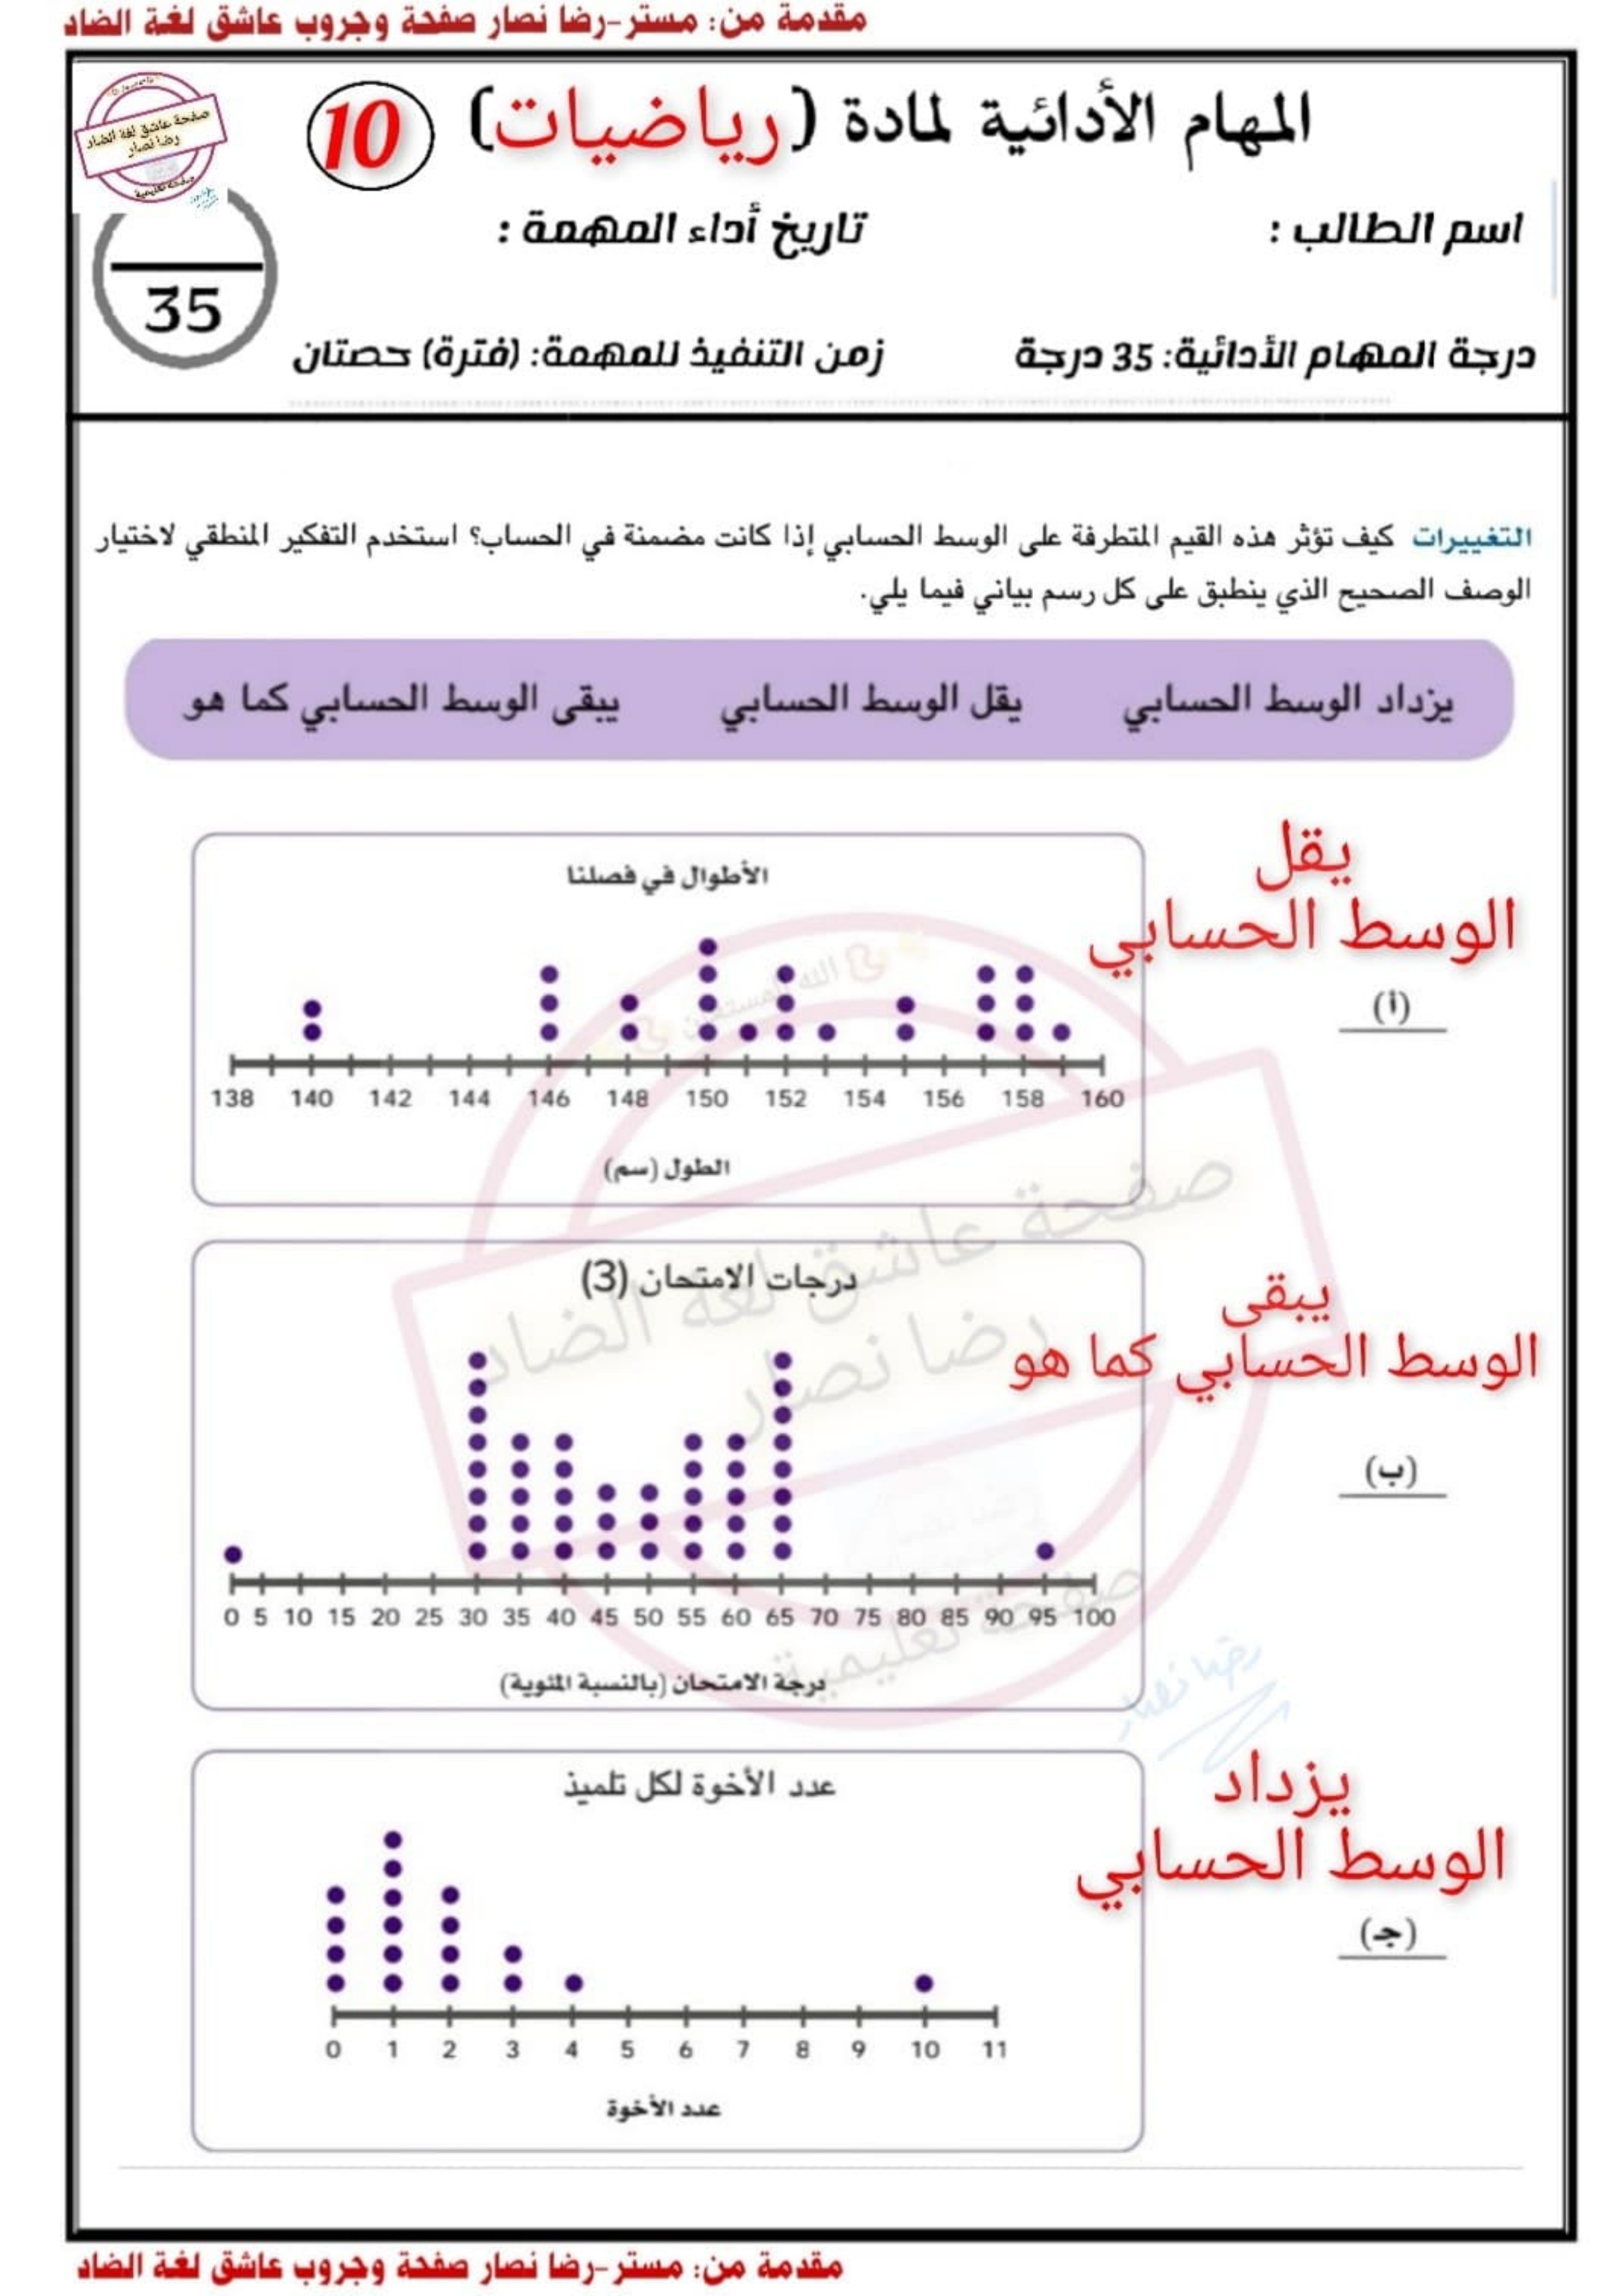 مقدمة من: مستر-رضا نصار صفحة وجروب عاشق لغة الضاد
المهام الأدائية لمادة (رياضيات) 10
صفحة عاشق لغة الضاد
رضا نصار
صفحة تعليمية
اسم الطالب : تاريخ أداء المهمة :
35
درجة المهام الأدائية: 35 درجة زمن التنفيذ للمهمة: (فترة) حصتان
التغييرات كيف تؤثر هذه القيم المتطرفة على الوسط الحسابي إذا كانت مضمنة في الحساب؟ استخدم التفكير المنطقي لاختيار
الوصف الصحيح الذي ينطبق على كل رسم بياني فيما يلي.
يزداد الوسط الحسابي يقل الوسط الحسابي يبقى الوسط الحسابي كما هو
يقل
الوسط الحسابي
(أ)
الأطوال في فصلنا
138 140 142 144 146 148 150 152 154 156 158 160
الطول (سم)
صفحة عاشق لغة الضاد
رضا نصار
صفحة تعليمية
يبقى
الوسط الحسابي كما هو
(ب)
درجات الامتحان (3)
0 5 10 15 20 25 30 35 40 45 50 55 60 65 70 75 80 85 90 95 100
درجة الامتحان (بالنسبة المئوية)
رضا نصار
يزداد
الوسط الحسابي
(جـ)
عدد الأخوة لكل تلميذ
0 1 2 3 4 5 6 7 8 9 10 11
عدد الأخوة
مقدمة من: مستر-رضا نصار صفحة وجروب عاشق لغة الضاد